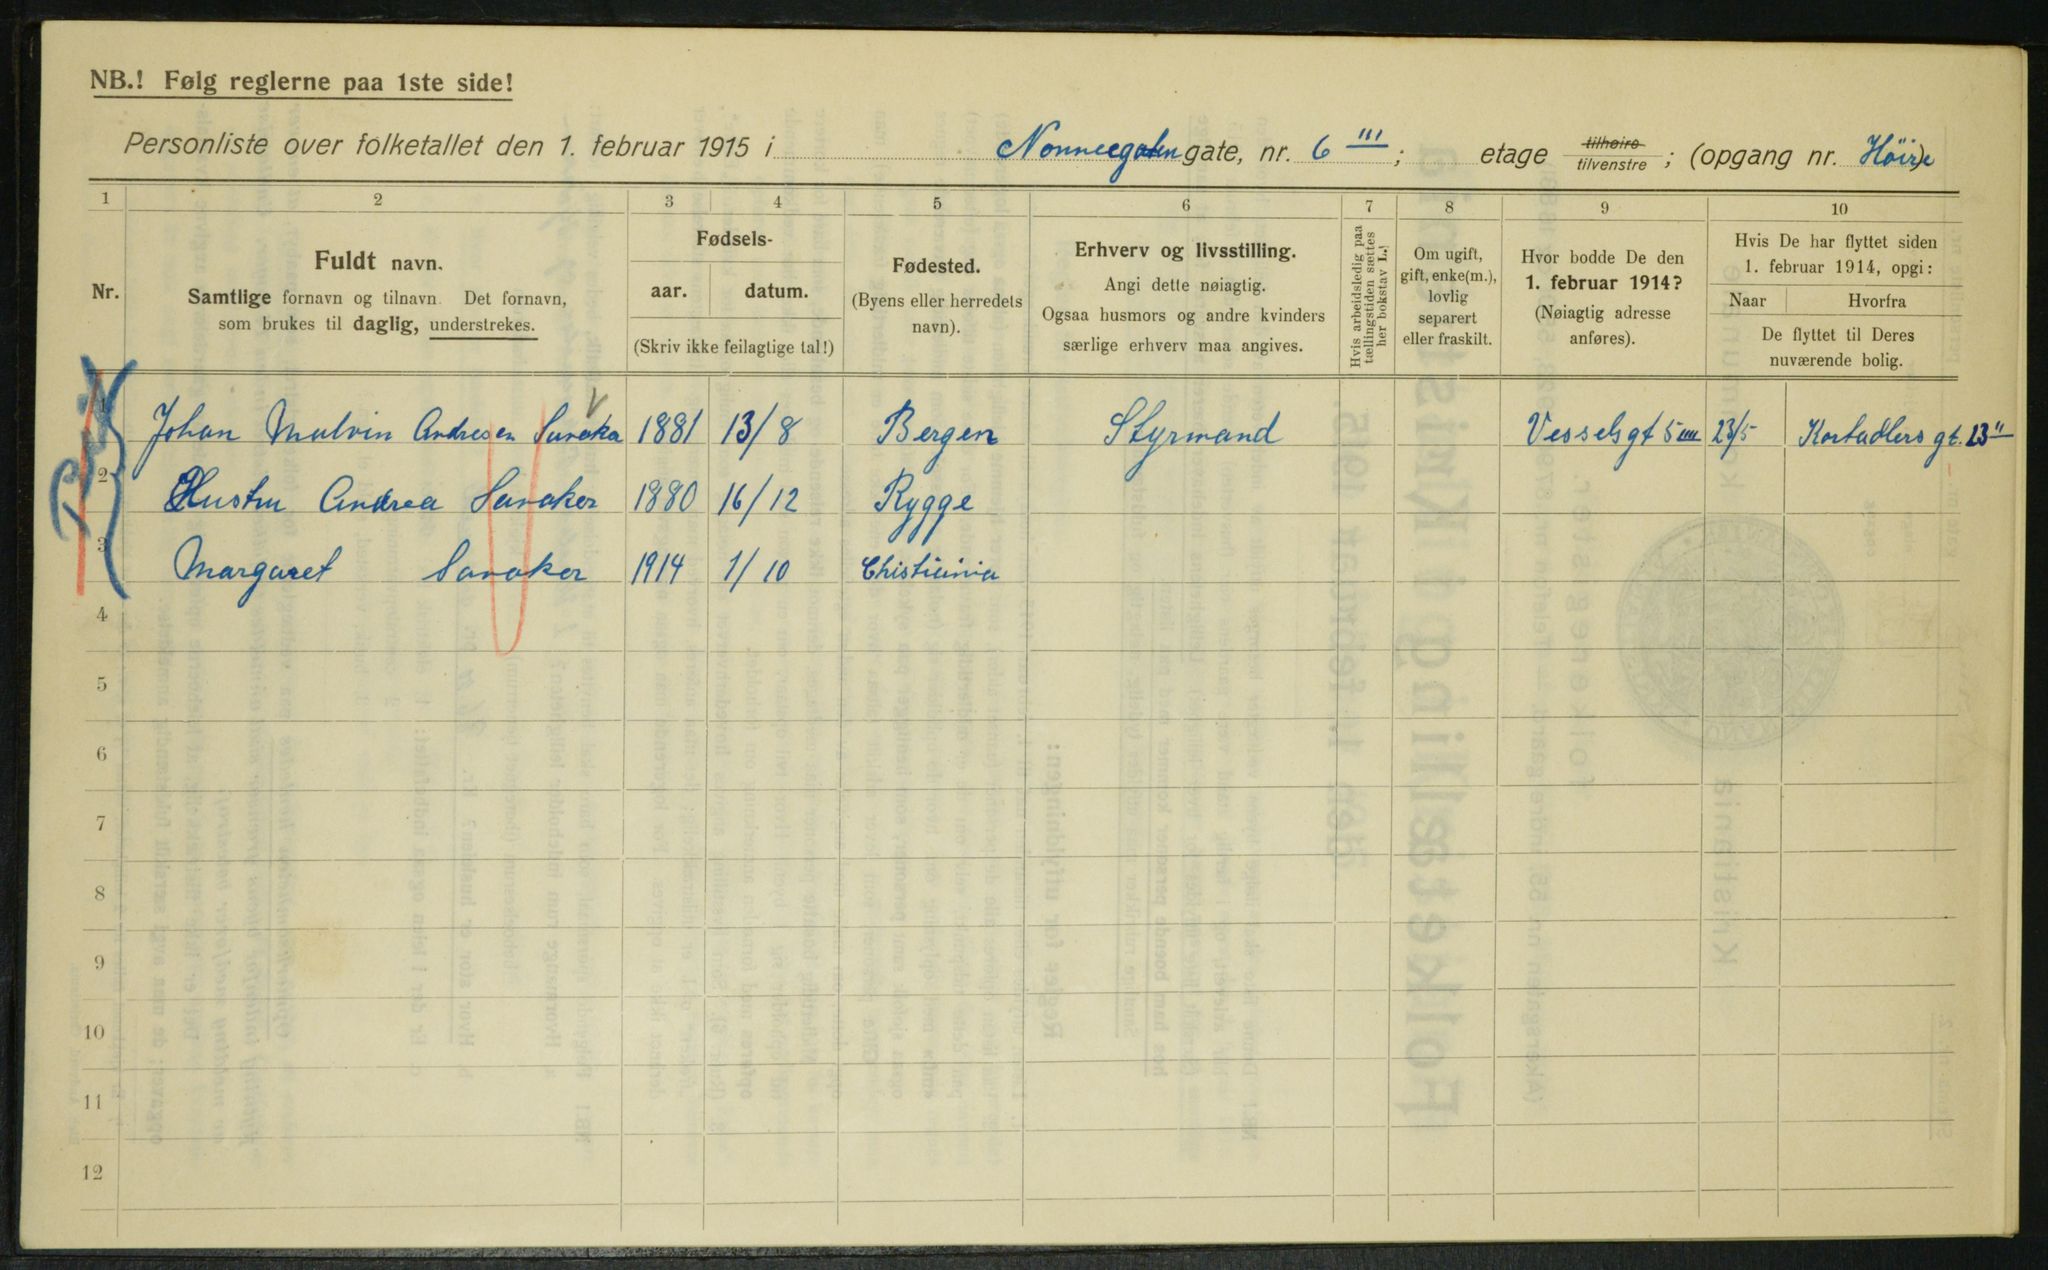 NB.! Følg reglerne paa 1ste side!
Personliste over folketallet den 1. februar 1915 i Nonneegaten gate, nr. 6 III; etage tilhøire tilvenstre; (opgang nr. Höire)
1 2 3 4 5 6 7 8 9 10
Nr.
Fuldt navn.
Samtlige fornavn og tilnavn. Det fornavn,
som brukes til daglig, understrekes.
Fødsels-
aar. datum.
(Skriv ikke feilagtige tal!)
Fødested.
(Byens eller herredets
navn).
Erhverv og livsstilling.
Angi dette nøiagtig.
Ogsaa husmors og andre kvinders
særlige erhverv maa angives.
Hvis arbeidsledig paa
tællingstiden sættes
her bokstav L.!
Om ugift,
gift, enke(m.),
lovlig
separert
eller fraskilt.
Hvor bodde De den
1. februar 1914?
(Nøiagtig adresse
anføres).
Hvis De har flyttet siden
1. februar 1914, opgi:
Naar Hvorfra
De flyttet til Deres
nuværende bolig.
1 Johan Malvin Andresen 1881 13/8 Bergen Styrmand Vesselsgt 5 IIII 23/5 Kortadlers gt. 23 II
2 Hustru Andrea Savaker 1880 16/12 Rygge
3 Margaret Savaker 1914 1/10 Christiania
4
5
6
7
8
9
10
11
12